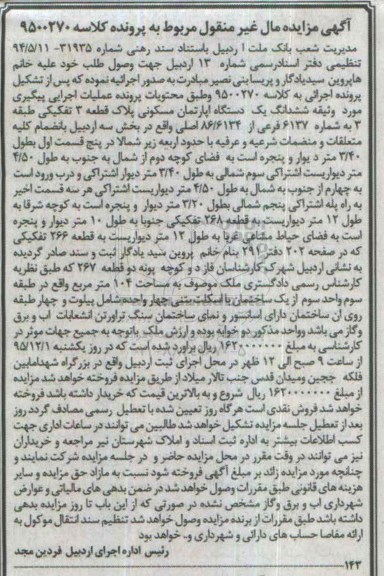 آگهی مزایده مال غیر منقول مربوط به پرونده کلاسه ۹۵۰۰۲۷۰
مدیریت شعب بانک ملت اردبیل باستناد سند رهنی شماره ۳۱۹۳۵- ۹۴/۵/۱۱
تنظیمی دفتر اسنادرسمی شماره ۱۳ اردبیل جهت وصول طلب خود علیه خانم
هاپروین سیدیادگار و پریسابنی نصیر مبادرت به صدور اجرائیه نموده که پس از تشکیل
پرونده اجرائی به کلاسه ۹۵۰۰۲۷۰ وطبق محتویات پرونده عملیات اجرایی پیگیری
مورد وثیقه ششدانگ یک دستگاه آپارتمان مسکونی پلاک قطعه ۳ تفکیکی طبقه
۳ به شماره ۶۱۳۷ فرعی از ۸۶/۶۱۳۴ اصلی واقع در بخش سه اردبیل بانضمام کلیه
متعلقات و منضمات شرعیه و عرفیه با حدود اربعه زیر شمالا در پنج قسمت اول بطول
۳/۴۰ متر دیوار و پنجره است به فضای کوچه دوم از شمال به جنوب به طول ۴/۵۰
متر دیواریست اشتراکی سوم شمالی به طول ۳/۴۰ متر دیوار اشتراکی و درب ورود است
به چهارم از جنوب به شمال به طول ۴/۵۰ متر دیواریست اشتراکی هر سه قسمت اخیر
به راه پله اشتراکی پنجم شمالی بطول ۳/۲۰ متر دیوار و پنجره است به کوچه شرقا به
طول ۱۲ متر دیواریست به قطعه ۲۶۸ تفکیکی جنوبا به طول ۱۰ متر دیوار و پنجره
است به فضای حیاط مشاعی غربا به طول ۱۲ متر دیواریست به قطعه ۲۶۶ تفکیکی
که در صفحه ۲۰۲ دفتر ۲۹۱ بنام خانم پروین سید یادگار ثبت و سند صادر گردیده
به نشانی اردبیل شهرک کارشناسان فاز دو کوچه پونه دو قطعه ۲۶۷ که طبق نظریه
کارشناس رسمی دادگستری ملک موصوف به مساحت ۱۰۴ متر مربع واقع در طبقه
سوم واحد سوم از یک ساختمان با اسکلت بتنی چهار واحده شامل پیلوت و چهار طبقه
روی آن ساختمان دارای آسانسور و نمای ساختمان سنگ تراورتن انشعابات آب و برق
وگاز می باشد وواحد مذکور دو خوابه بوده و ارزش ملک باتوجه به جمیع جهات موثر در
کارشناسی به مبلغ ۱۶۲۰۰۰۰۰۰۰ ریال برآورد شده است که در روز یکشنبه ۹۵/۱۲/۱
از ساعت ۹ صبح الی ۱۲ ظهر در محل اجرای ثبت اردبیل واقع در بزرگراه شهدامابین
فلکه ججین ومیدان قدس جنب تالار میلاد از طریق مزایده فروخته خواهد شد مزایده
از مبلغ ۱۶۲۰۰۰۰۰۰۰ ریال شروع و به بالاترین قیمت که خریدار داشته باشد فروخته
خواهد شد فروش نقدی است هر گاه روز تعیین شده با تعطیل رسمی مصادف گردد روز
بعد از تعطیل جلسه مزایده تشکیل خواهد شد طالبین می توانند در ساعات اداری جهت
کسب اطلاعات بیشتر به اداره ثبت اسناد و املاک شهرستان نیر مراجعه و خریداران
نیز می توانند در وقت مقرر در محل مزایده حاضر و در جلسه مزایده شرکت نمایند و
چنانچه مورد مزایده زائد بر مبلغ آگهی فروخته شود نسبت به مازاد حق مزایده و سایر
هزینه های قانونی طبق مقررات وصول خواهد شد در ضمن بدهی های مالیاتی و عوارض
شهرداری آب و برق وگاز مشخص نشده در صورتی که از این باب تا روز مزایده بدهی
داشته باشد طبق مقررات از برنده مزایده وصول خواهد شد تنظیم سند انتقال موکول به
ارائه مفاصا حساب های دارائی و شهرداری و.. خواهد بود
رئیس اداره اجرای اردبیل فردین مجد
۱۴۳